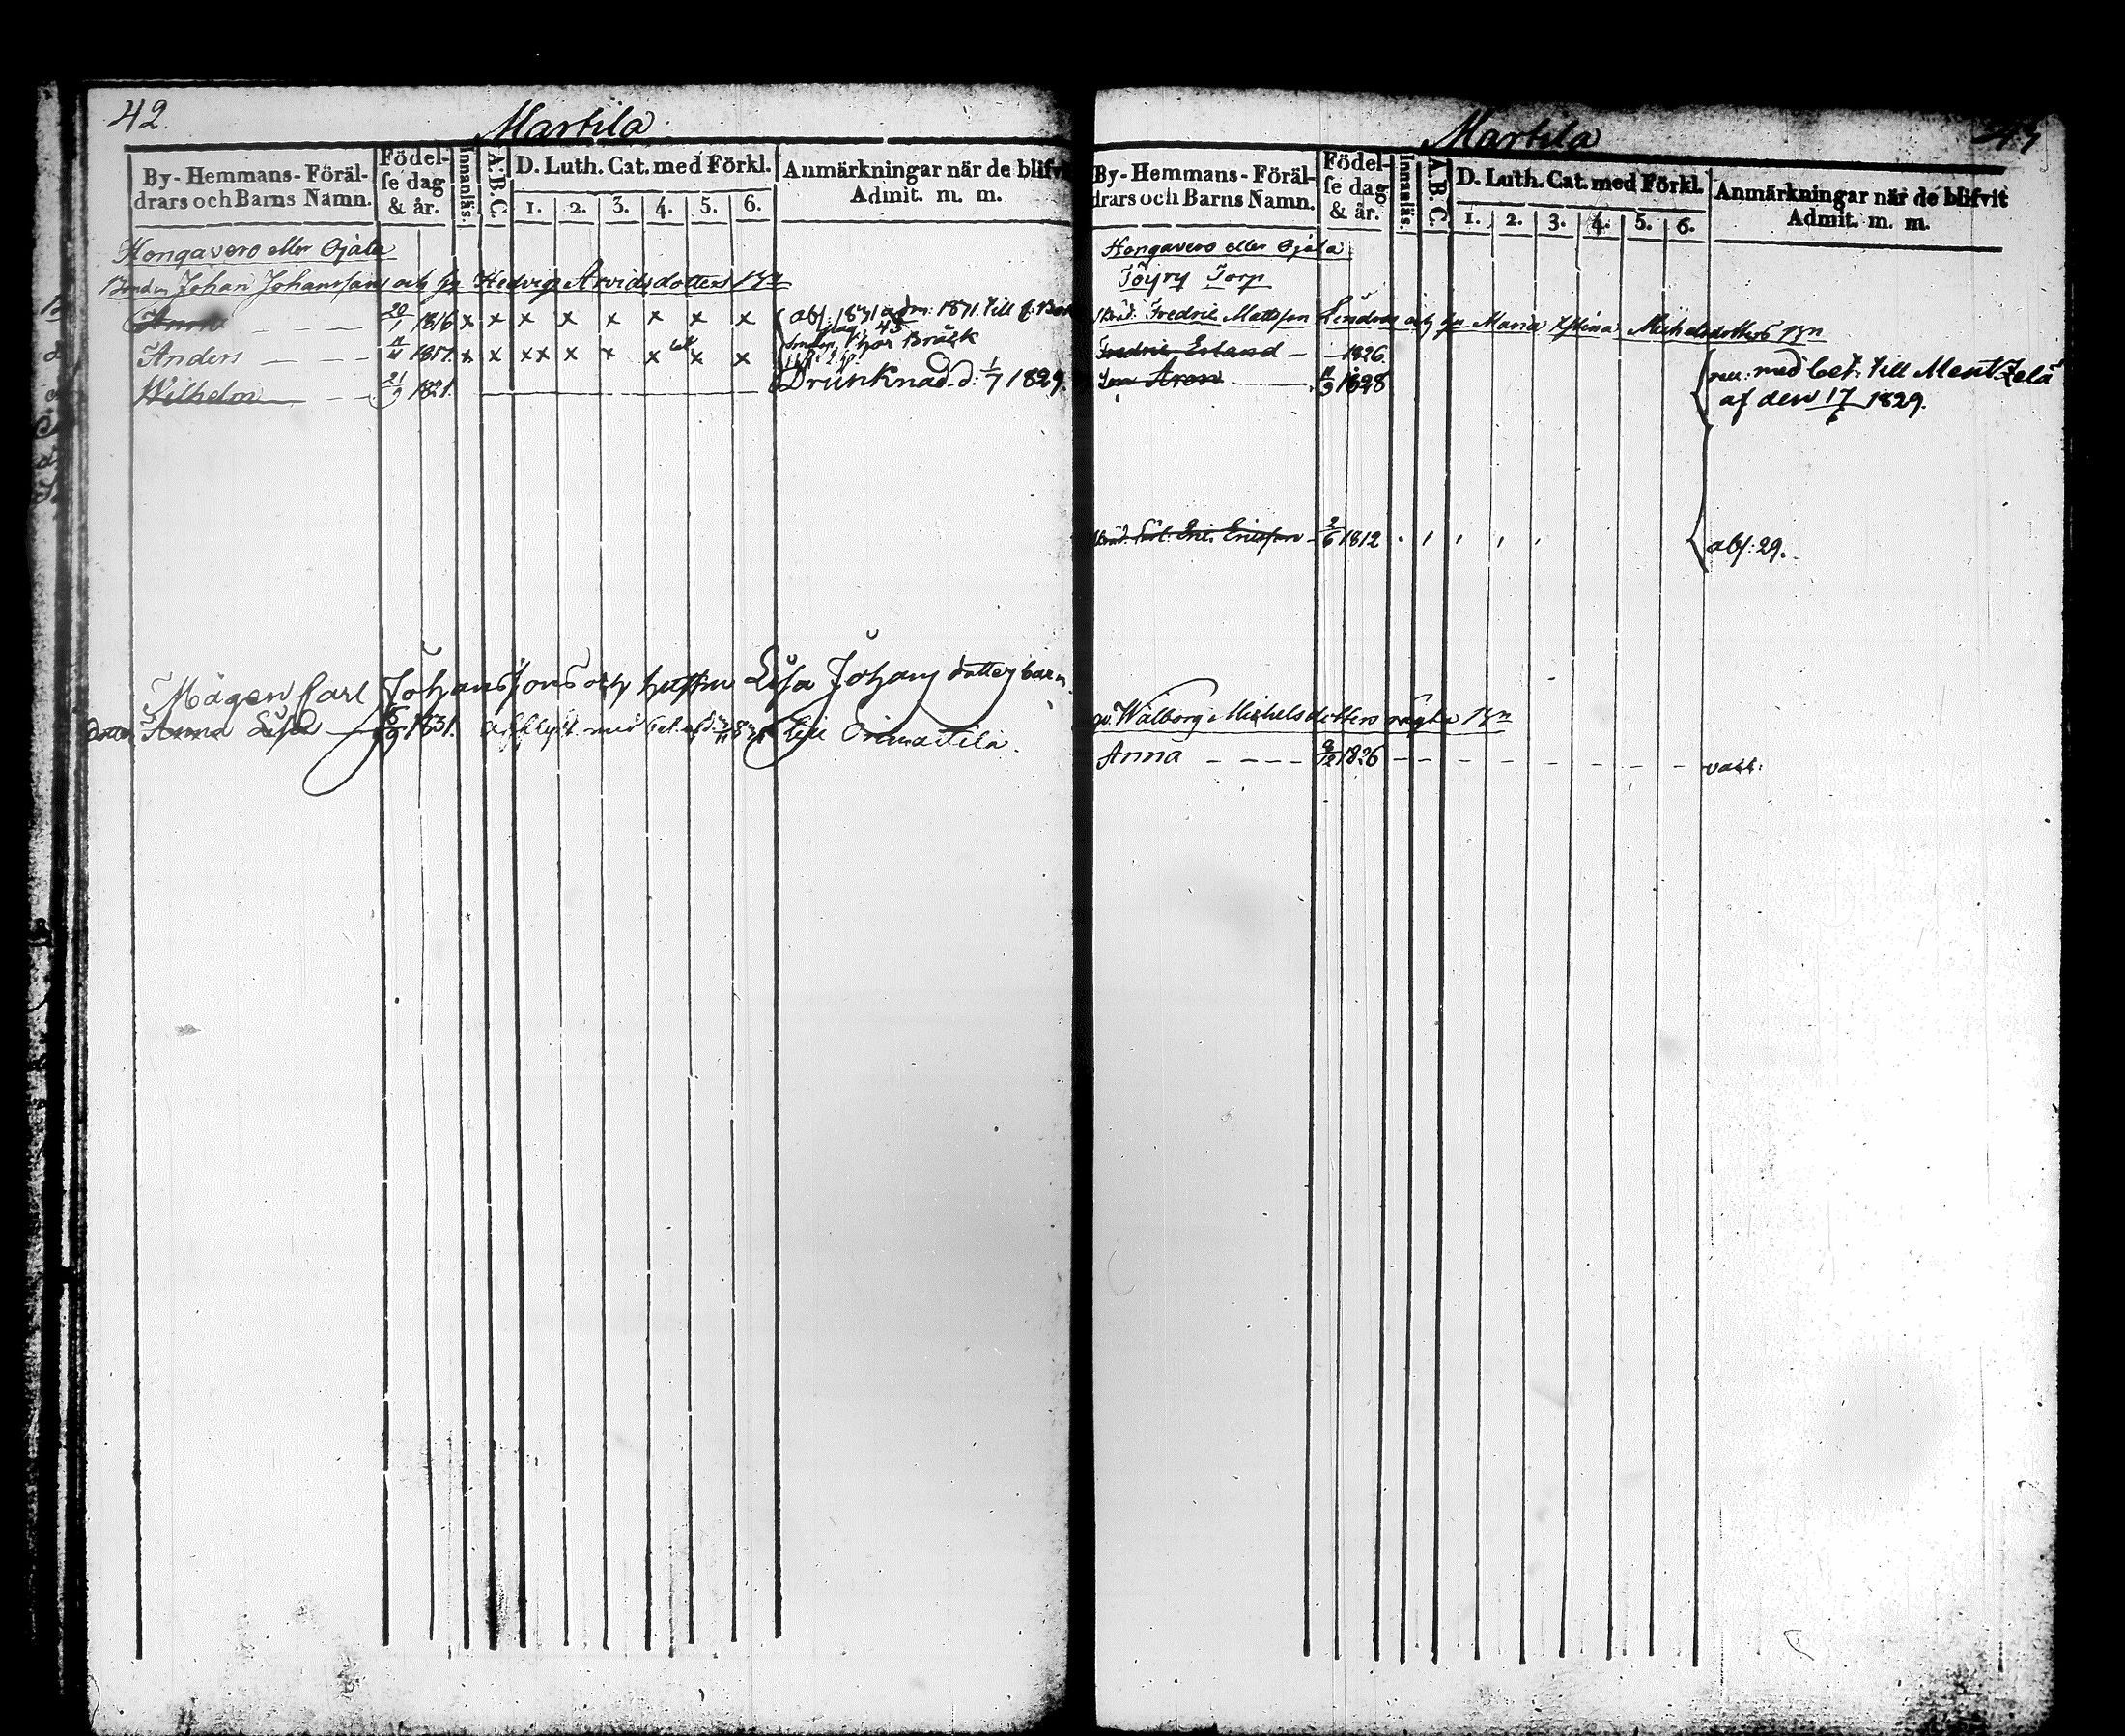 42.
Martila
By-Hemmans-Föräl-
drars och Barns Namn.
Födel-
se dag
& år.
Innanläs.
A.B.C.
D. Luth. Cat. med Förkl.
1. 2. 3. 4. 5. 6.
Anmärkningar när de blifv
Admit. m. m.
Hongavero eller Ojala
Bonden Johan Johanssons och hu Hedvig Arvidsdotters Bn
20/1 1816 x x x x x x x x
Anders 1817 x x xx x x x x x
hos
Wilhelm 21/9 1821. Drunknad d: 1/7 1829.
Mågen Carl Johanssons och hustru Lisa Johans dotter barn
dotter Anna Lisa 6/9 1831. med bet. till Orimattila.
43
Martila
By-Hemmans-Föräl-
drars och Barns Namn.
Födel-
se dag
& år.
Innanläs.
A.B.C.
D. Luth. Cat. med Förkl.
1. 2. 3. 4. 5. 6.
Anmärkningar när de blifvit
Admit. m. m.
Hongavero eller Ojala
Töyry Torp
Fredric Mattsson Lindros och hu Maria Michelsdotters Bn
Fredric Erland — 1826.
Aron 11/9 1828
med bet: till MentZelä
af den 17/6 1829.
Eric Ericsson 2/6 1812 abs: 29.
Walborg Michelsdotters Bn
Anna - - - - 9/12 1826 - - - - - - - - vacc: